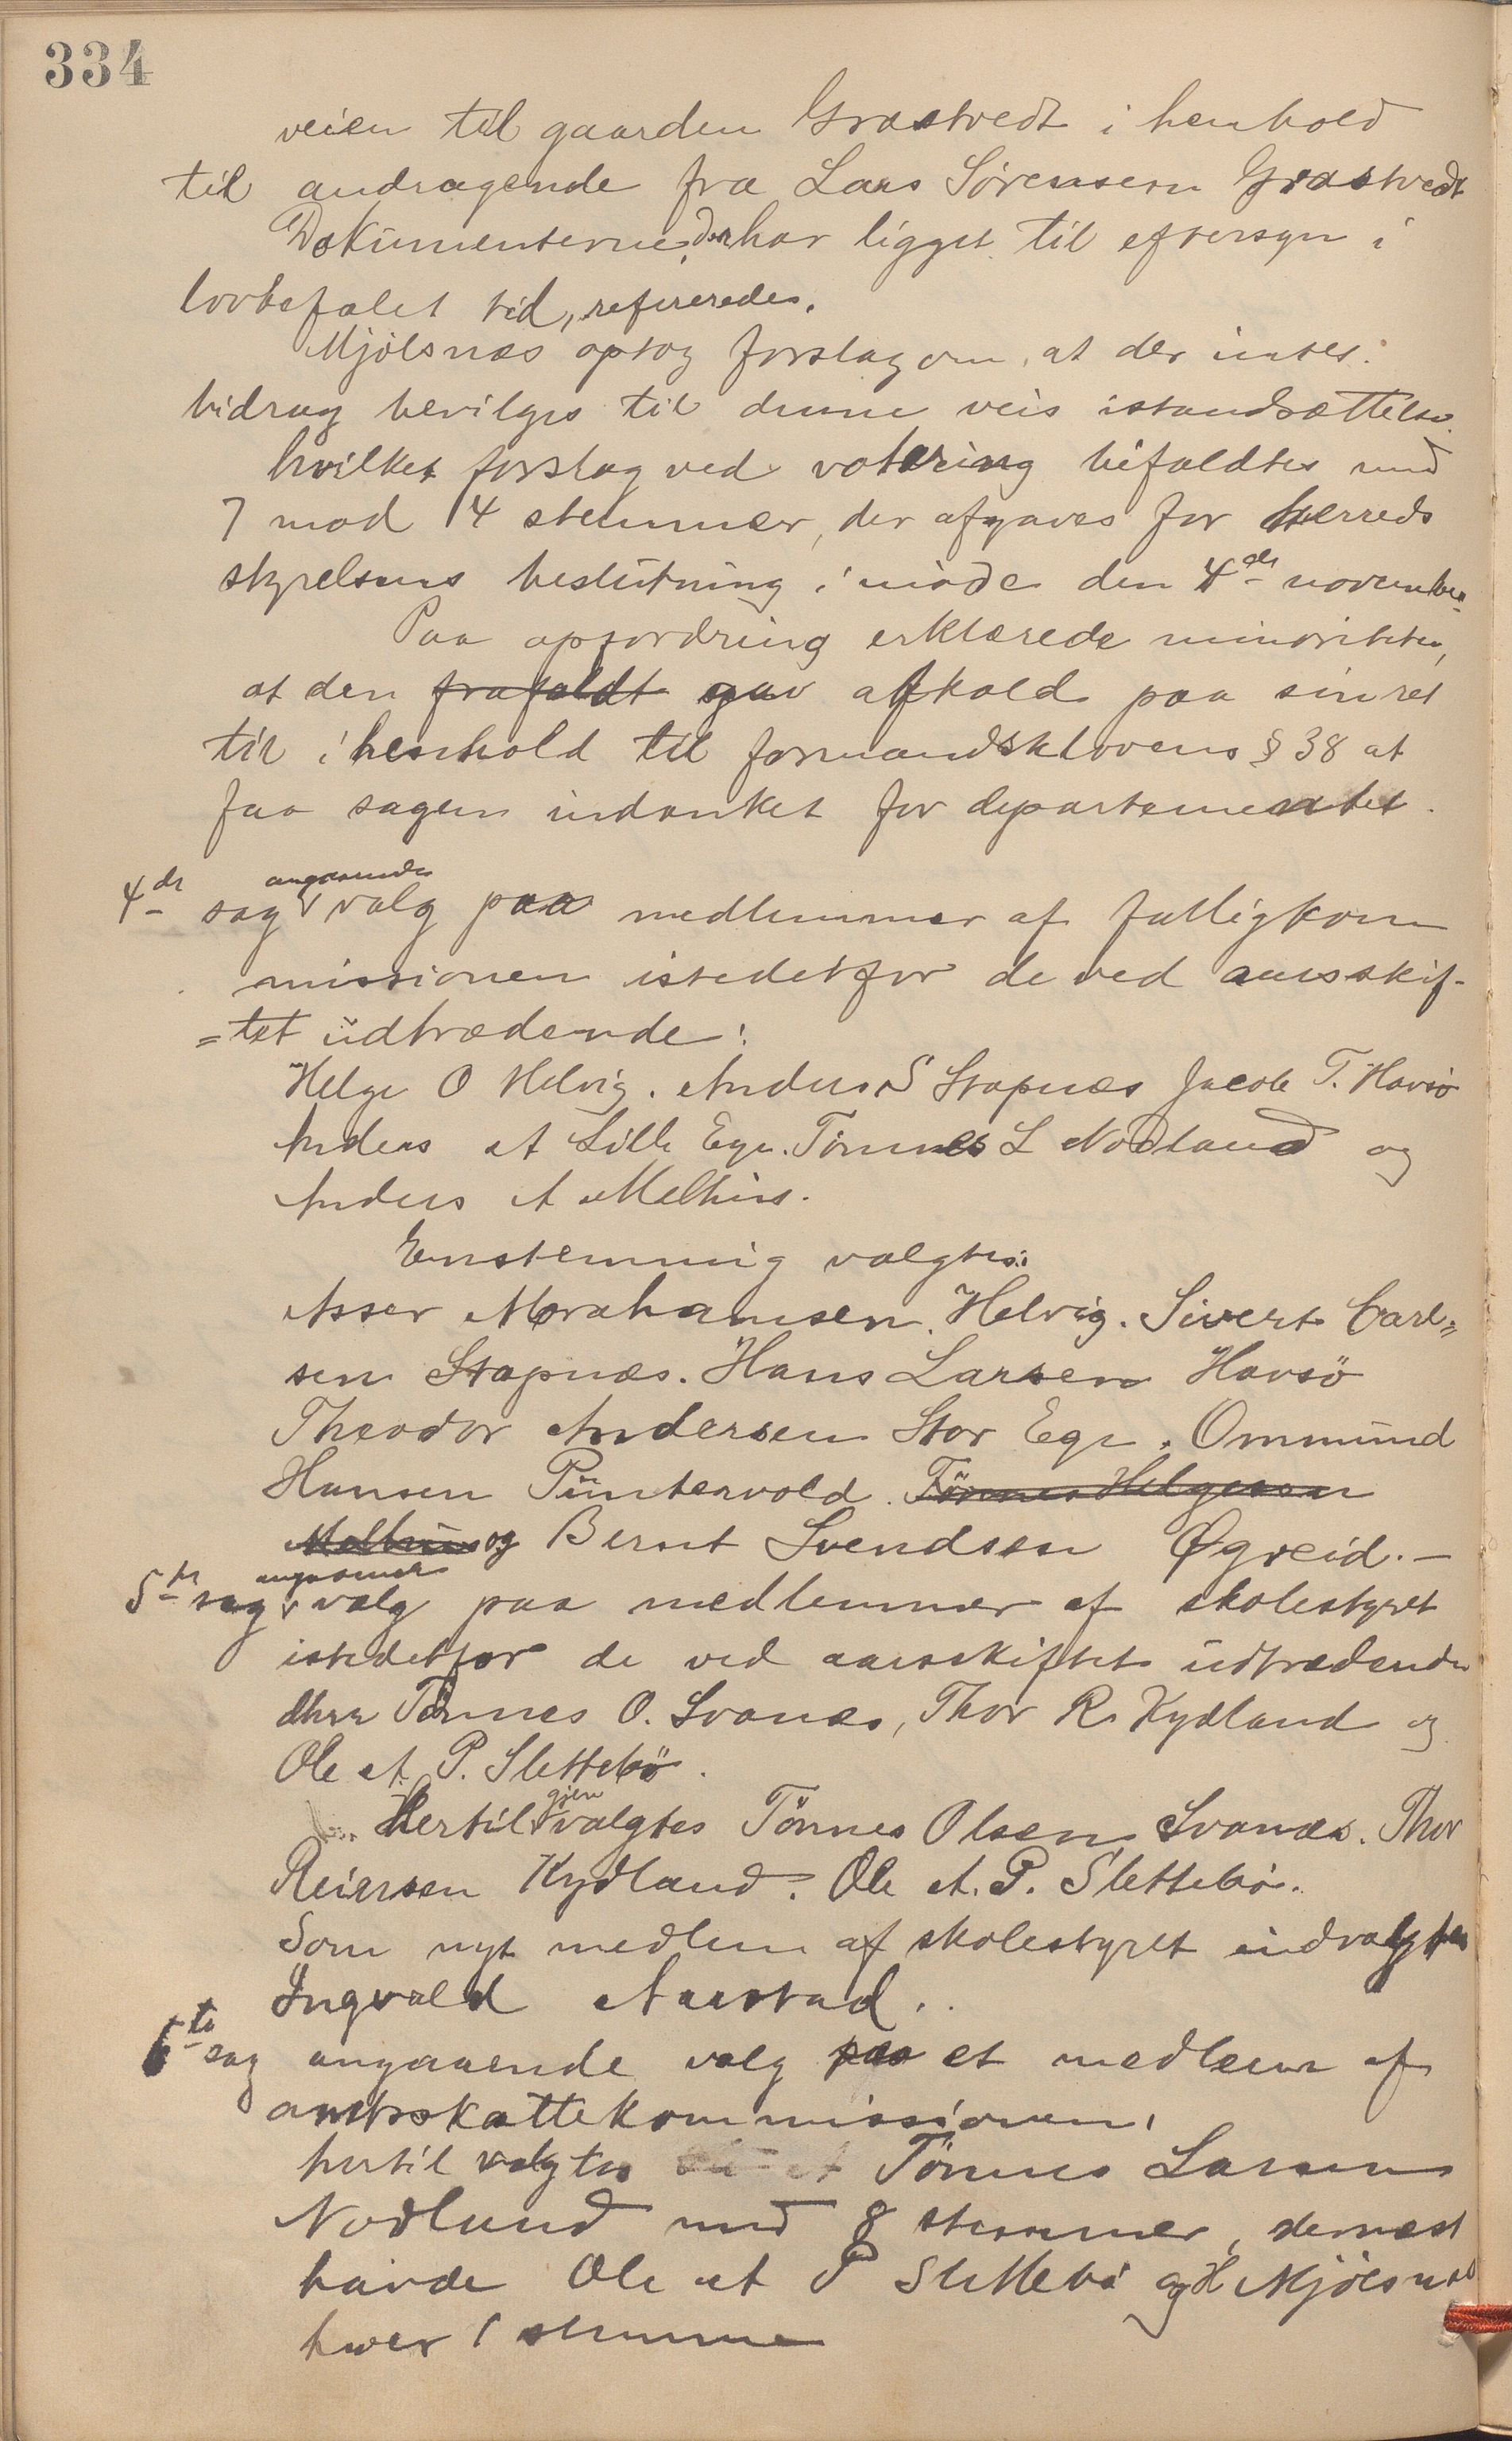 334
veien til gaarden Græstvedt i henhold
til andragende fra Lars Sørensen Græstvedt
Dokumenterne, der har ligget til eftersyn i
lovbefalet tid, refereredes.
Mjølsnæs optog forslag om, at der intet
bidrag bevilges til denne veis istandsættelse
hvilket forslag ved votering bifaldtes med
7 mod 4 stemmer, der afgaves for herreds
styrelsens beslutning i møde den 4de november
Paa opfordring erklærede minoriteten,
at den frafaldt gav afkald paa sin ret
til i henhold til formandsklovens § 38 at
faa sagen indanket for departementet.
4de sag angaaende valg paa medlemmer af fattigkom
missionen istedetfor de ved aarsskif-
=tet üdtrædende:
Helge O Helvig. Anders S Stapnæs Jacob T. Havsø
Anders A Lille Ege. Tönnes L Nodland og
Anders A Melhus.
Enstemmig valgtes:
Asser Abrahamsen Helvig. Sivert Carl=
sen Stapnæs. Hans Larsen Havsö
Theodor Andersen Stor Ege. Ommünd
Hansen Püntervold. Tönnes Helgesen
Melhüs og Bernt Svendsen Øgreid.-
5te sag angaaende valg paa medlemmer af skolestyret
istedetfor de ved aarsskiftet üdtrædende
dhrr Tönnes O. Svanes, Thor R. Kydland og
Ole A. P. Slettebö.
Hertil gjenvalgtes Tönnes Olsen Svanæs. Thor
Reiersen Kydland. Ole A. P. Slettebö.
Som nyt medlem af skolestyret indvalgtes
Ingvald Aarstad.
6te sag angaaende valg paa et medlem af
amtsskattekommissionen,
hertil valgtes Tönnes Larsen
Nodland med 8 stemmer, dernæst
havde Ole A P Slettebö og H Mjölsnæs
hver 1 stemme